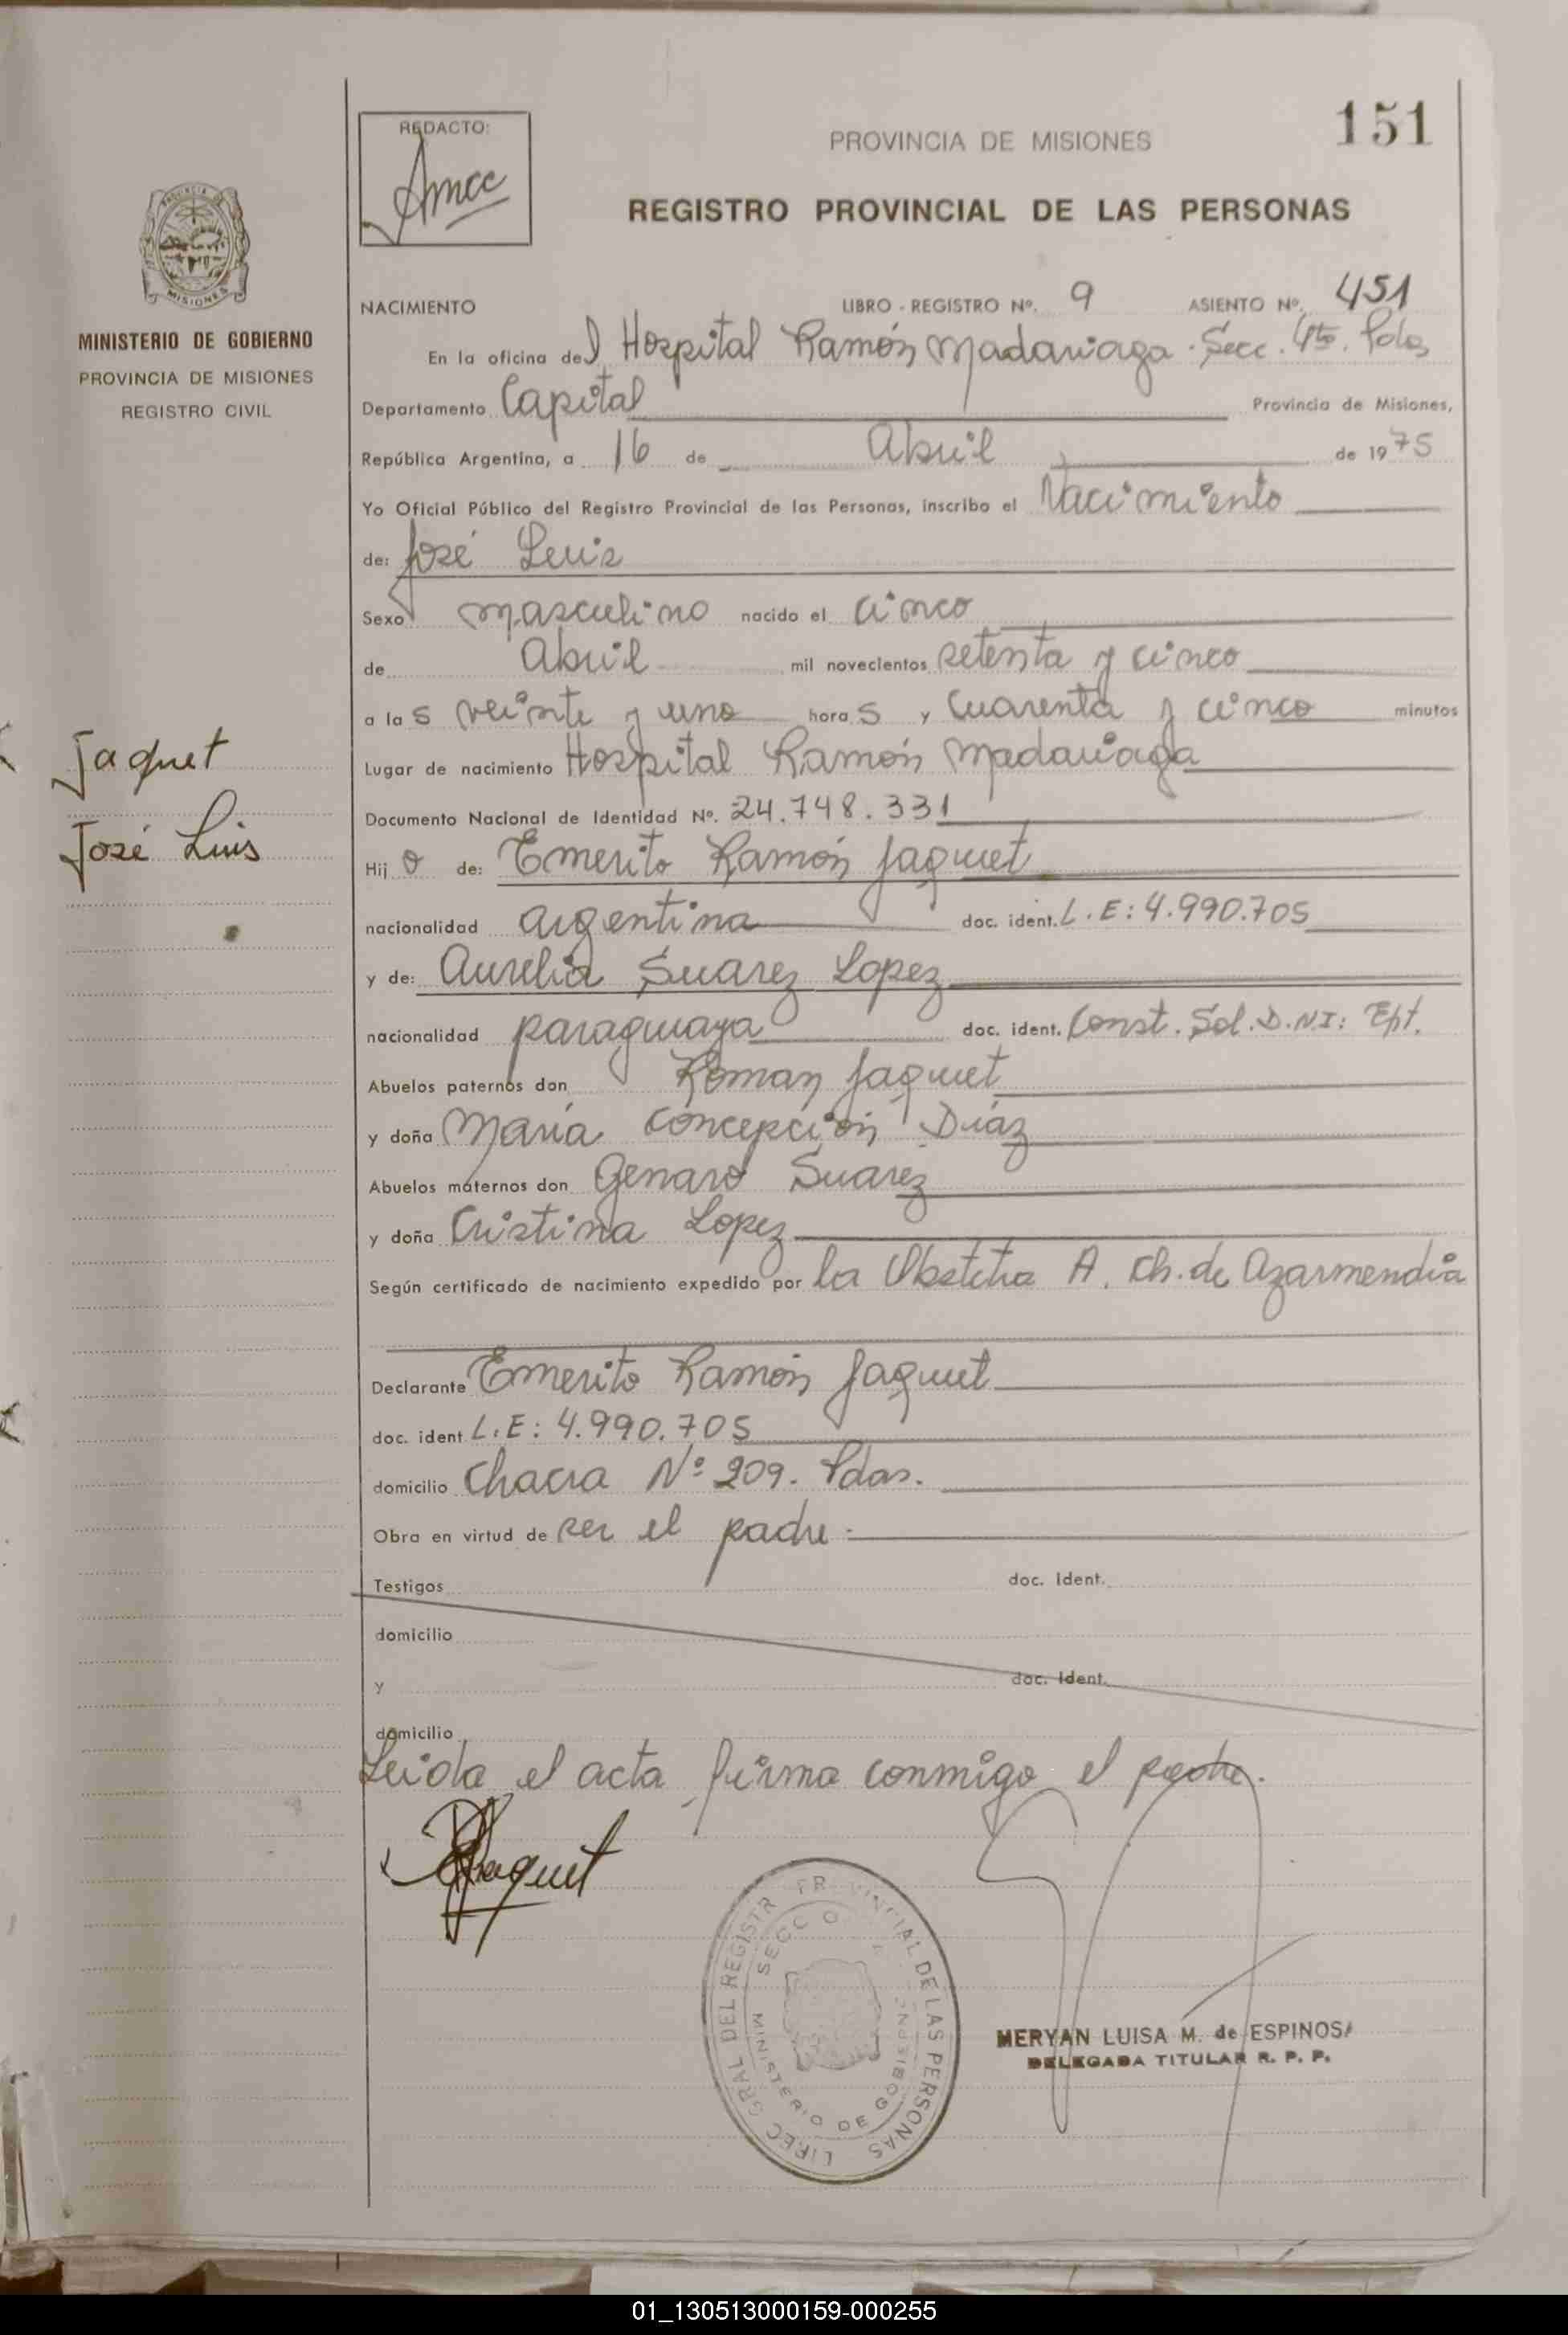 REDACTO:
Amcc
PROVINCIA DE MISIONES
151
REGISTRO PROVINCIAL DE LAS PERSONAS
MISIONES
MINISTERIO DE GOBIERNO
PROVINCIA DE MISIONES
REGISTRO CIVIL
NACIMIENTO LIBRO - REGISTRO Nº. 9 ASIENTO Nº. 451
En la oficina del Hospital Ramón Madariaga. Secc. 4ta. Pdas
Departamento Capital Provincia de Misiones,
República Argentina, a 16 de Abril de 1975
Yo Oficial Público del Registro Provincial de las Personas, inscribo el Nacimiento
de: José Luis
Sexo masculino nacido el cinco
de Abril mil novecientos setenta y cinco
a las veinte y uno horas y cuarenta y cinco minutos
Jaquet
José Luis
Lugar de nacimiento Hospital Ramón Madariaga
Documento Nacional de Identidad Nº. 24.748.331
Hijo de: Emerito Ramón Jaquet
nacionalidad argentina doc. ident. L.E: 4.990.705
y de: Aurelia Suarez Lopez
nacionalidad paraguaya doc. ident. Const. Sol. D.N.I: Ept.
Abuelos paternos don Roman Jaquet
y doña María Concepción Díaz
Abuelos maternos don Genaro Suarez
y doña Cristina Lopez
Según certificado de nacimiento expedido por la Obstetra A. Ch. de Azarmendia
Declarante Emerito Ramón Jaquet
doc. ident L.E: 4.990.705
domicilio Chacra Nº 209. Pdas.
Obra en virtud de ser el padre.
Testigos doc. Ident.
domicilio
y doc. Ident.
domicilio
Leida el acta, firma conmigo el padre.
Jaquet
GRAL DEL REGISTR PROVINCIAL DE LAS PERSONAS
MINISTERIO DE GOBIERNO
MERYAN LUISA M. de ESPINOSA
DELEGADA TITULAR R. P. P.
01_130513000159-000255